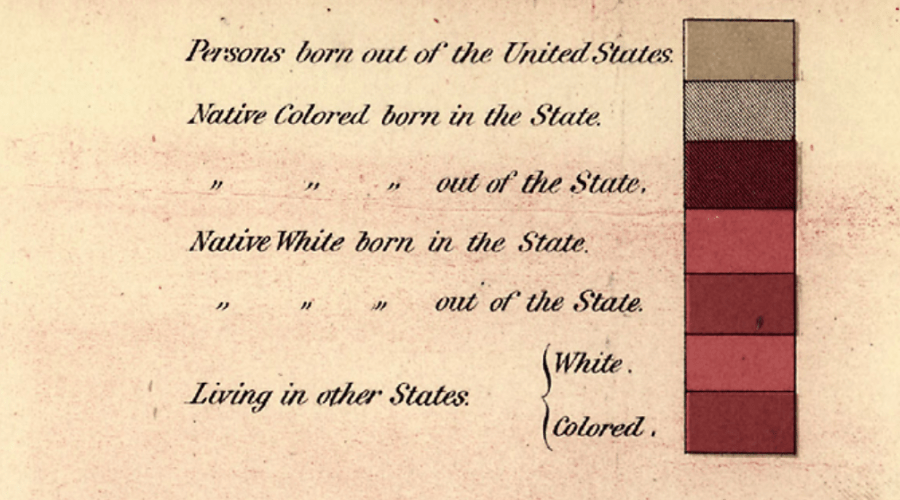 Persons born out of the United States.
Native Colored born in the State.
" " " out of the State.
Native White born in the State.
" " " out of the State.
Living in other States. { White.
Colored.